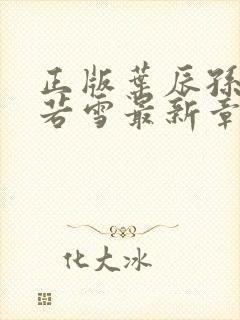 正版葉辰孫
若雪最新章
化大冰